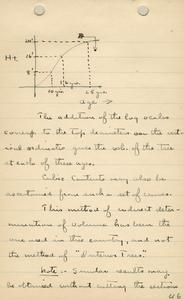 B
Ht
24'
16'
8'
10 yrs. 16 yrs. 25 yrs.
age →
The addition of the log scales
corresp. to the top diameter on the vert-
ical ordinate gives the vol. of the tree
at each of these ages.
Cubic contents may also be
ascertained from such a set of curves.
This method of indirect deter-
minations of volume has been the
one used in this country, and not
the method of "Mature Trees".
Note:- Similar results may
be obtained without cutting the sections